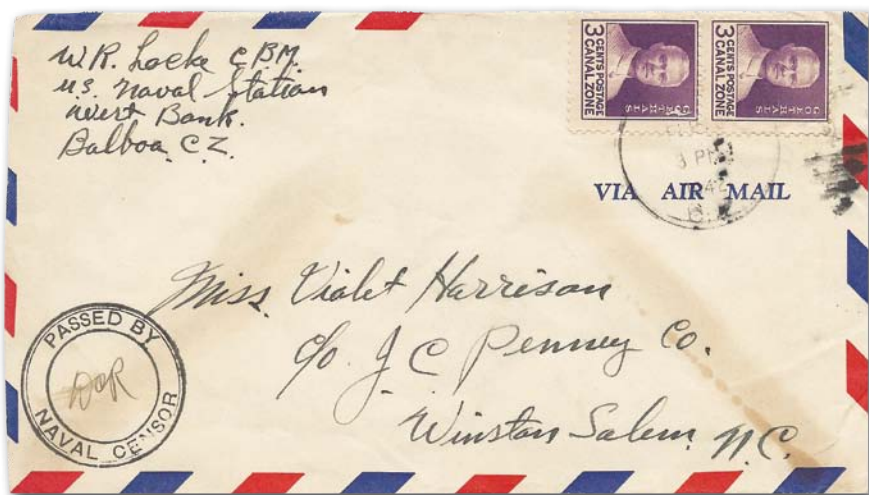 W.R. Locke C.B.M.
U.S. Naval Station
West Bank.
Balboa. C.Z.
3 CENTS POSTAGE
CANAL ZONE
GOETHALS
3 CENTS POSTAGE
CANAL ZONE
GOETHALS
3 PM
VIA AIR MAIL
Miss Violet Harrison
c/o J C Penney Co.
Winston Salem. N.C.
PASSED BY
DOR
NAVAL CENSOR